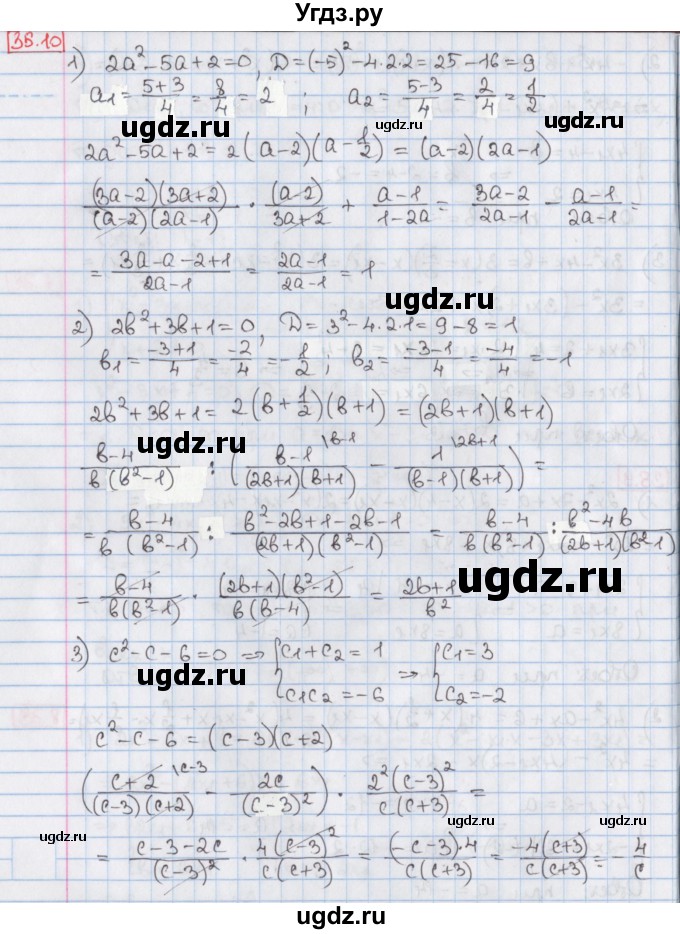 Угдз.ру
38.10
1) 2a² - 5a + 2 = 0, D = (-5)² - 4·2·2 = 25 - 16 = 9
a₁ = (5+3)/4 = 8/4 = 2 ; a₂ = (5-3)/4 = 2/4 = 1/2
ugdz.ru ugdz.ru
2a² - 5a + 2 = 2(a-2)(a - 1/2) = (a-2)(2a-1)
(3a-2)(3a+2)/((a-2)(2a-1)) · (a-2)/(3a+2) + (a-1)/(1-2a) = (3a-2)/(2a-1) - (a-1)/(2a-1) =
= (3a-a-2+1)/(2a-1) = (2a-1)/(2a-1) = 1
ugdz.ru
2) 2b² + 3b + 1 = 0, D = 3² - 4·2·1 = 9 - 8 = 1
b₁ = (-3+1)/4 = -2/4 = -1/2 ; b₂ = (-3-1)/4 = -4/4 = -1
ugdz.ru
2b² + 3b + 1 = 2(b + 1/2)(b+1) = (2b+1)(b+1)
(b-4)/(b(b²-1)) : ((b-1)/((2b+1)(b+1)) \b-1 - 1/((b-1)(b+1)) \2b+1) =
ugdz.ru
= (b-4)/(b(b²-1)) : (b²-2b+1-2b-1)/((2b+1)(b²-1)) = (b-4)/(b(b²-1)) : (b²-4b)/((2b+1)(b²-1))
ugdz.ru
= (b-4)/(b(b²-1)) · (2b+1)(b²-1)/(b(b-4)) = (2b+1)/b²
3) c² - c - 6 = 0 => { c₁ + c₂ = 1 => { c₁ = 3
c₁c₂ = -6 c₂ = -2
ugdz.ru
c² - c - 6 = (c-3)(c+2)
((c+2)/((c-3)(c+2)) \c-3 - 2c/(c-3)²) · 2²(c-3)²/(c(c+3)) =
ugdz.ru ugdz.ru ugdz.ru
= (c-3-2c)/(c-3)² · 4(c-3)²/(c(c+3)) = (-c-3)·4/(c(c+3)) = -4(c+3)/(c(c+3)) = -4/c
ugdz.ru